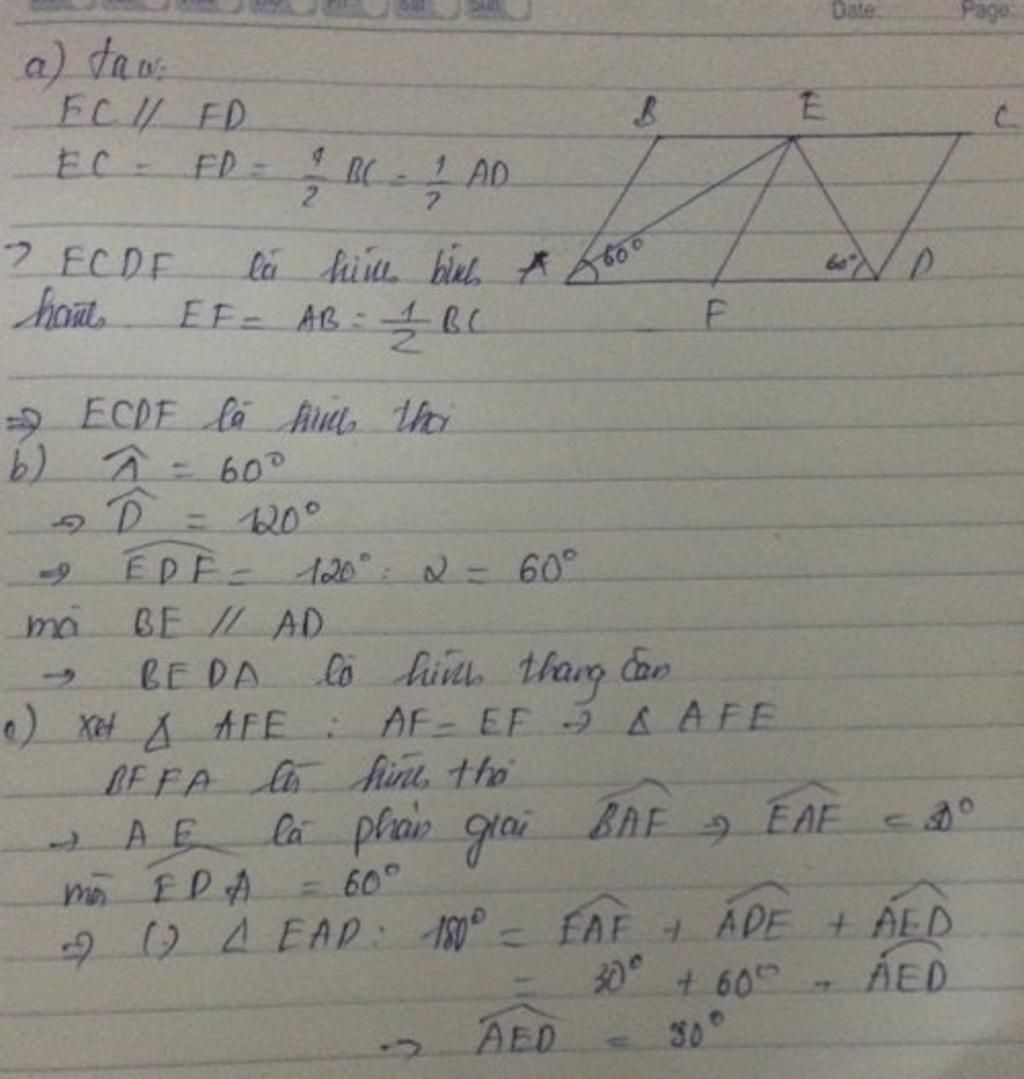 Date: Page:
a) ta có:
EC // FD
EC = FD = 1/2 BC = 1/2 AD
B E C
→ ECDF là hình bình A 60° 60° D
hành EF = AB = 1/2 BC F
⇒ ECDF là hình thoi
b) Â = 60°
⇒ D̂ = 120°
⇒ EDF = 120° : 2 = 60°
mà BE // AD
→ BEDA là hình thang cân
c) xét Δ AFE : AF = EF → Δ AFE
BEFA là hình thoi
→ AE là phân giác BAF ⇒ EAF = 30°
mà EDA = 60°
⇒ Δ EAD: 180° = EAF + ADE + AED
= 30° + 60° + AED
→ AED = 90°